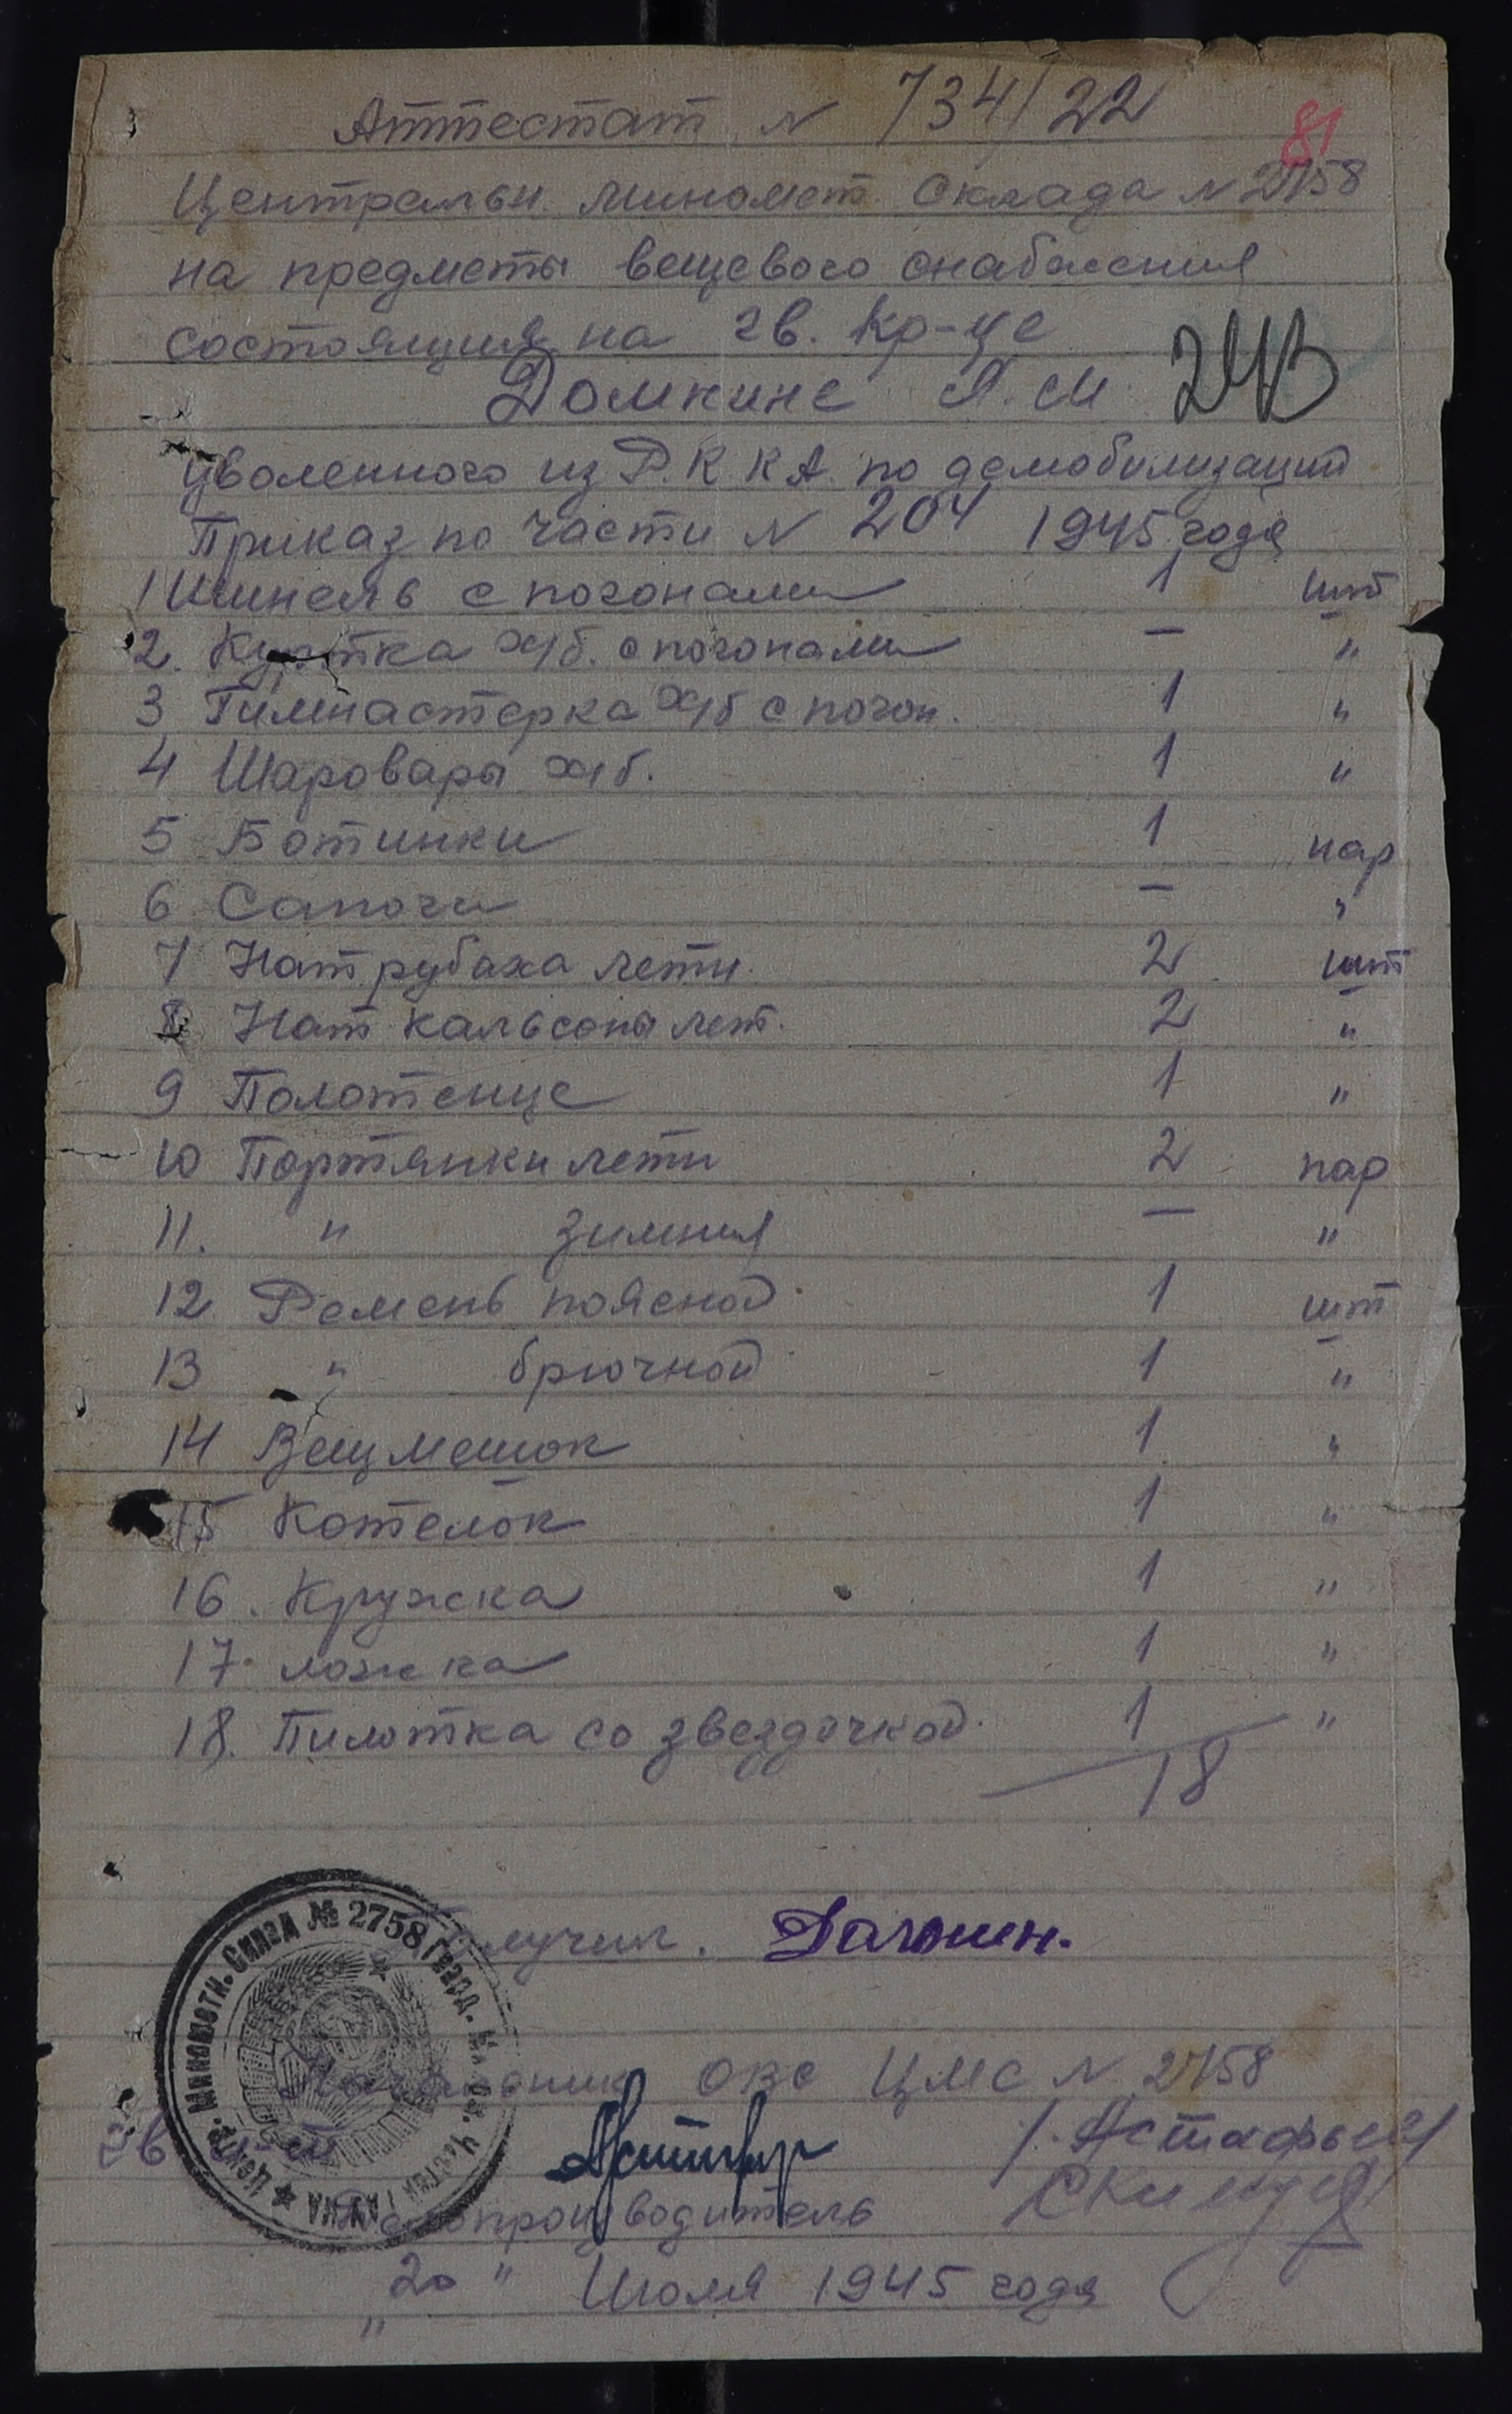 Аттестат N 734/22
81
Центральн. миномет. Склада N 2758
на предметы вещевого снабжения
состоящия на гв. кр-це
Домкине Я. М. 243
уволенного из Р.К К А. по демобилизаций
Приказ по части N 204 1945 года
1 Шинель с погонами 1 шт
2. Куртка х/б. с погонами — "
3 Гимнастерка х/б с погон. 1 "
4 Шаровары х/б. 1 "
5 Ботинки 1 пар
6 Сапоги — "
7 Нат рубаха летн. 2 шт
8 Нат кальсоны лет. 2 "
9 Полотенце 1 "
10 Портянки летн 2 пар
11. " зимния — "
12 Ремень поясной 1 шт
13 " брючной 1 "
14 Вещмешок 1 "
15 Котелок 1 "
16. Кружка 1 "
17. ложка 1 "
18. Пилотка со звездочкой. 1 "
18
Получил.
Начальник ОВС ЦМС N 2758
гв /. Астафьев/
Делопроизводитель
"20" Июля 1945 года
Центр. Минометн. Склад № 2758 Гвард. Мин. Частей ГАУКА